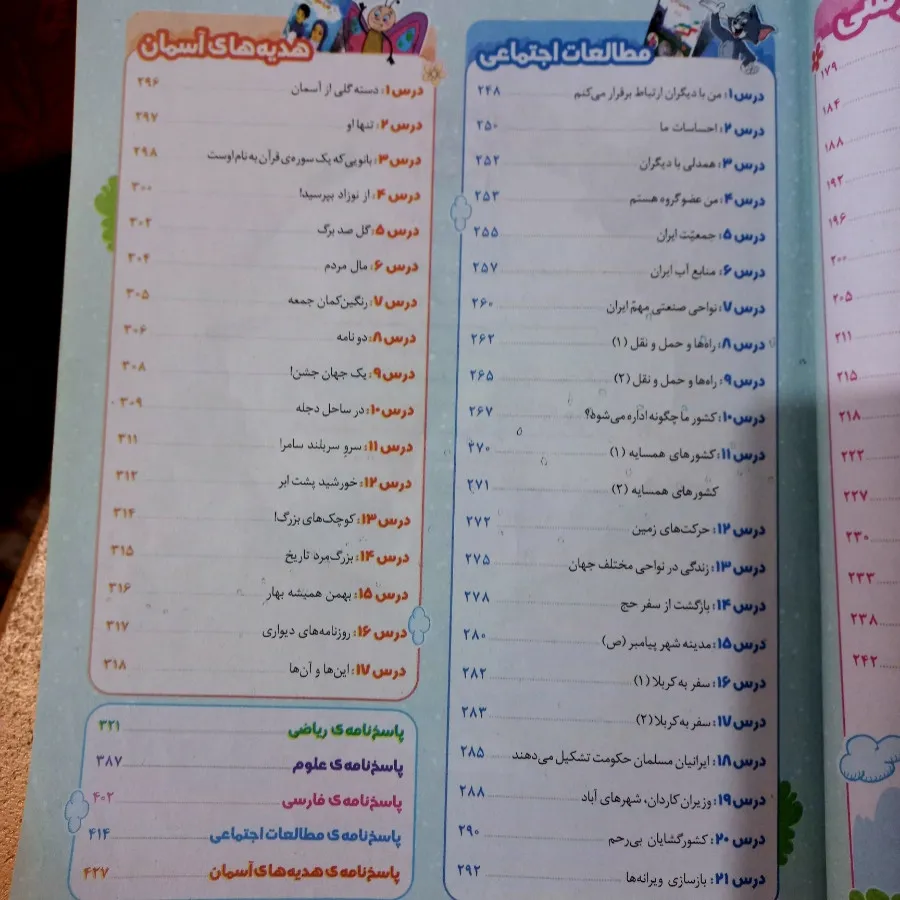 سی
۱۷۹
۱۸۴
۱۸۸
۱۹۲
۱۹۶
۲۰۰
۲۰۵
۲۱۱
۲۱۵
۲۱۸
۲۲۲
۲۲۷
۲۳۰
۲۳۳
۲۳۸
۲۴۲
مطالعات اجتماعی
درس ۱: من با دیگران ارتباط برقرار می‌کنم ۲۴۸
درس ۲: احساسات ما ۲۵۰
درس ۳: همدلی با دیگران ۲۵۲
درس ۴: من عضو گروه هستم ۲۵۳
درس ۵: جمعیّت ایران ۲۵۵
درس ۶: منابع آب ایران ۲۵۷
درس ۷: نواحی صنعتی مهمّ ایران ۲۶۰
درس ۸: راه‌ها و حمل و نقل (۱) ۲۶۲
درس ۹: راه‌ها و حمل و نقل (۲) ۲۶۵
درس ۱۰: کشور ما چگونه اداره می‌شود؟ ۲۶۷
درس ۱۱: کشورهای همسایه (۱) ۲۷۰
کشورهای همسایه (۲) ۲۷۱
درس ۱۲: حرکت‌های زمین ۲۷۲
درس ۱۳: زندگی در نواحی مختلف جهان ۲۷۵
درس ۱۴: بازگشت از سفر حج ۲۷۸
درس ۱۵: مدینه شهر پیامبر (ص) ۲۸۰
درس ۱۶: سفر به کربلا (۱) ۲۸۲
درس ۱۷: سفر به کربلا (۲) ۲۸۳
درس ۱۸: ایرانیان مسلمان حکومت تشکیل می‌دهند ۲۸۵
درس ۱۹: وزیران کاردان، شهرهای آباد ۲۸۸
درس ۲۰: کشورگشایان بی‌رحم ۲۹۰
درس ۲۱: بازسازی ویرانه‌ها ۲۹۲
هدیه‌های آسمان
درس ۱: دسته گلی از آسمان ۲۹۶
درس ۲: تنها او ۲۹۷
درس ۳: بانویی که یک سوره‌ی قرآن به نام اوست ۲۹۸
درس ۴: از نوزاد بپرسید! ۳۰۰
درس ۵: گل صد برگ ۳۰۲
درس ۶: مال مردم ۳۰۴
درس ۷: رنگین‌کمان جمعه ۳۰۵
درس ۸: دو نامه ۳۰۶
درس ۹: یک جهان جشن! ۳۰۸
درس ۱۰: در ساحل دجله ۳۰۹
درس ۱۱: سرو سربلند سامرا ۳۱۱
درس ۱۲: خورشید پشت ابر ۳۱۲
درس ۱۳: کوچک‌های بزرگ! ۳۱۴
درس ۱۴: بزرگ‌مرد تاریخ ۳۱۵
درس ۱۵: بهمن همیشه بهار ۳۱۶
درس ۱۶: روزنامه‌های دیواری ۳۱۷
درس ۱۷: این‌ها و آن‌ها ۳۱۸
پاسخ‌نامه‌ی ریاضی ۳۲۱
پاسخ‌نامه‌ی علوم ۳۸۷
پاسخ‌نامه‌ی فارسی ۴۰۲
پاسخ‌نامه‌ی مطالعات اجتماعی ۴۱۴
پاسخ‌نامه‌ی هدیه‌های آسمان ۴۲۷